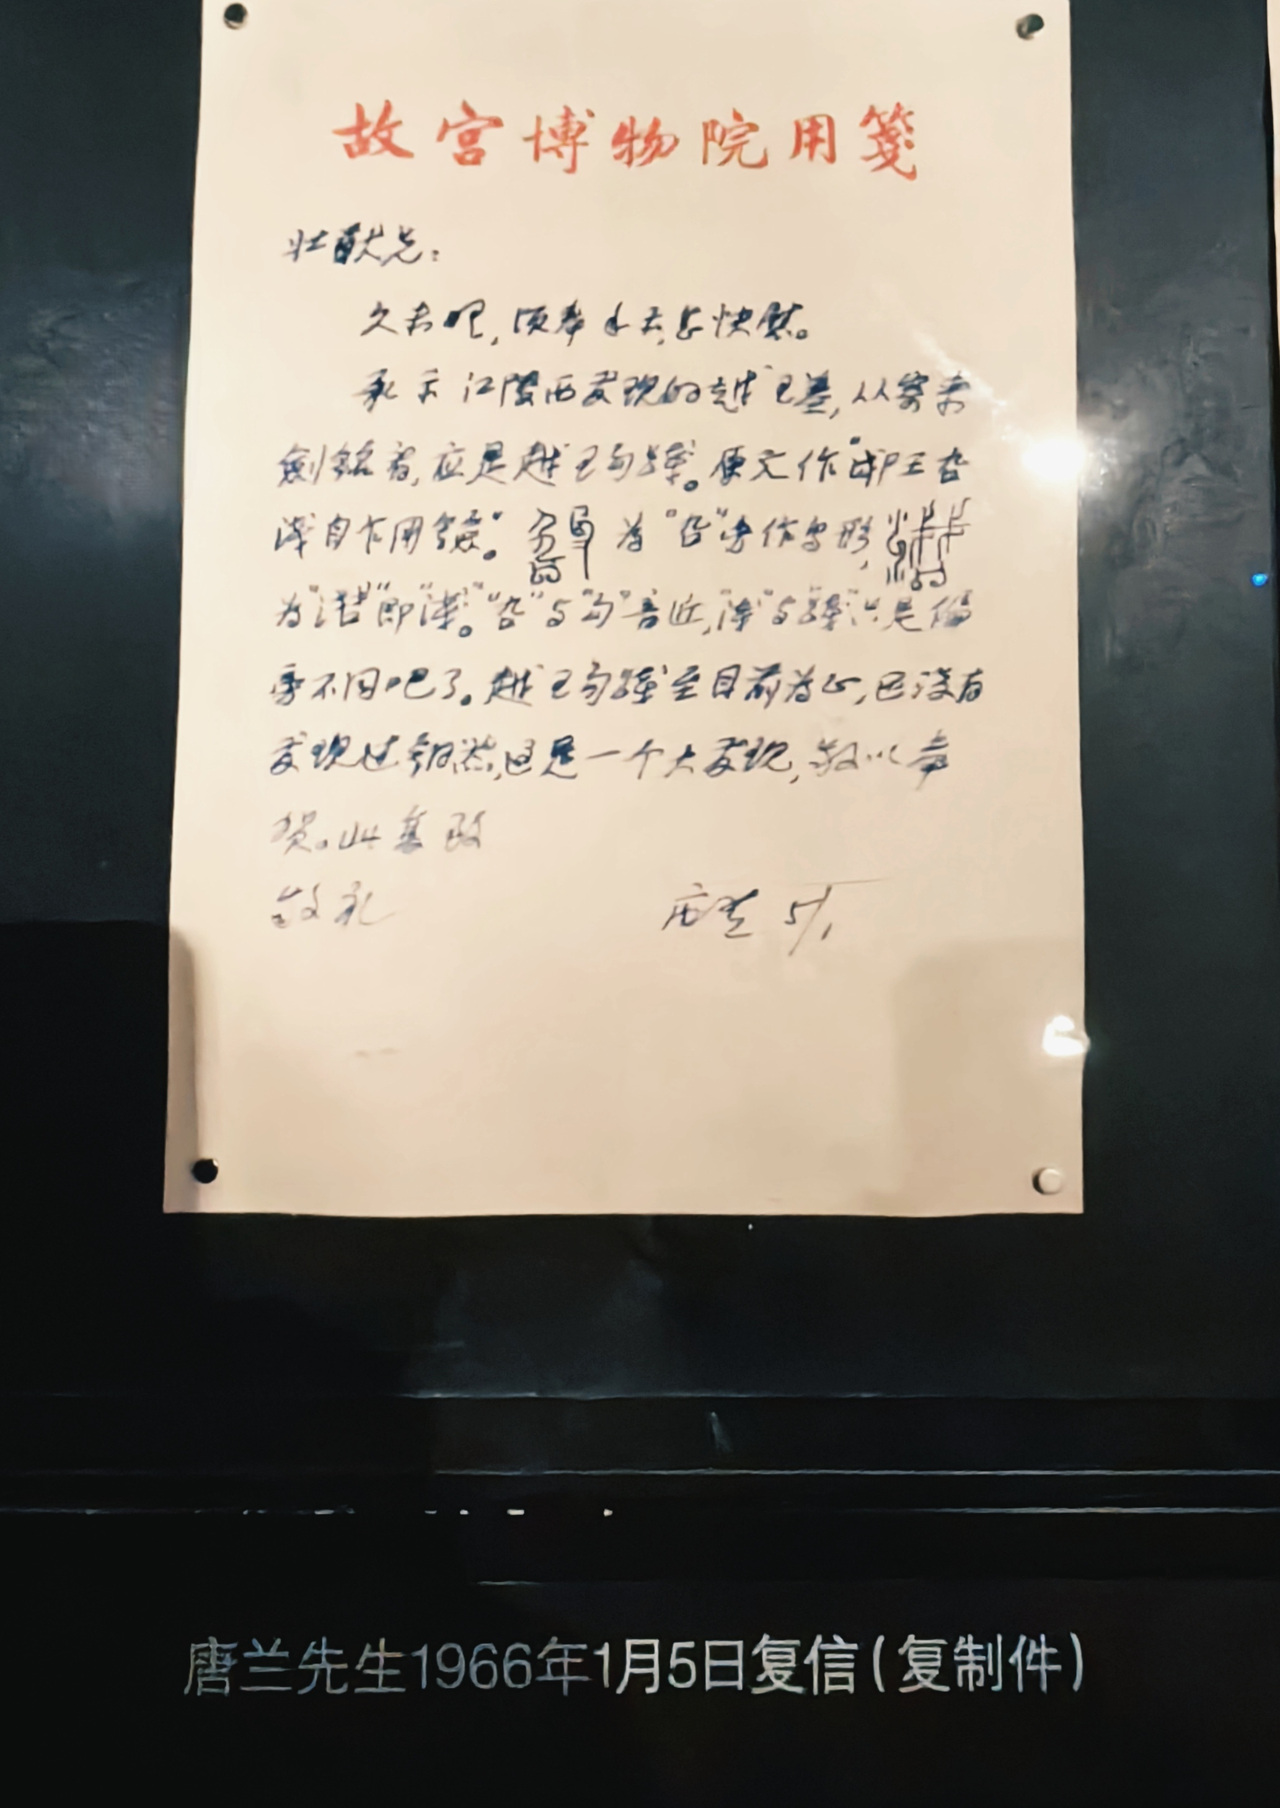 故宫博物院用笺
壮猷兄：
久未晤，
承示江陵西发现的越王墓，从寄来
剑铭看，应是越王句践。原文作“郕王
浅自乍用鐱”。为“”字作鸟形，
为“”即“浅”。“”与“句”音近，“浅”与“践”只是偏
旁不同吧了。越王句践至目前为止，还没有
发现过铜器，这是一个大发现，敬以奉
贺。此复 致
敬礼
唐兰 5/1
唐兰先生1966年1月5日复信（复制件）